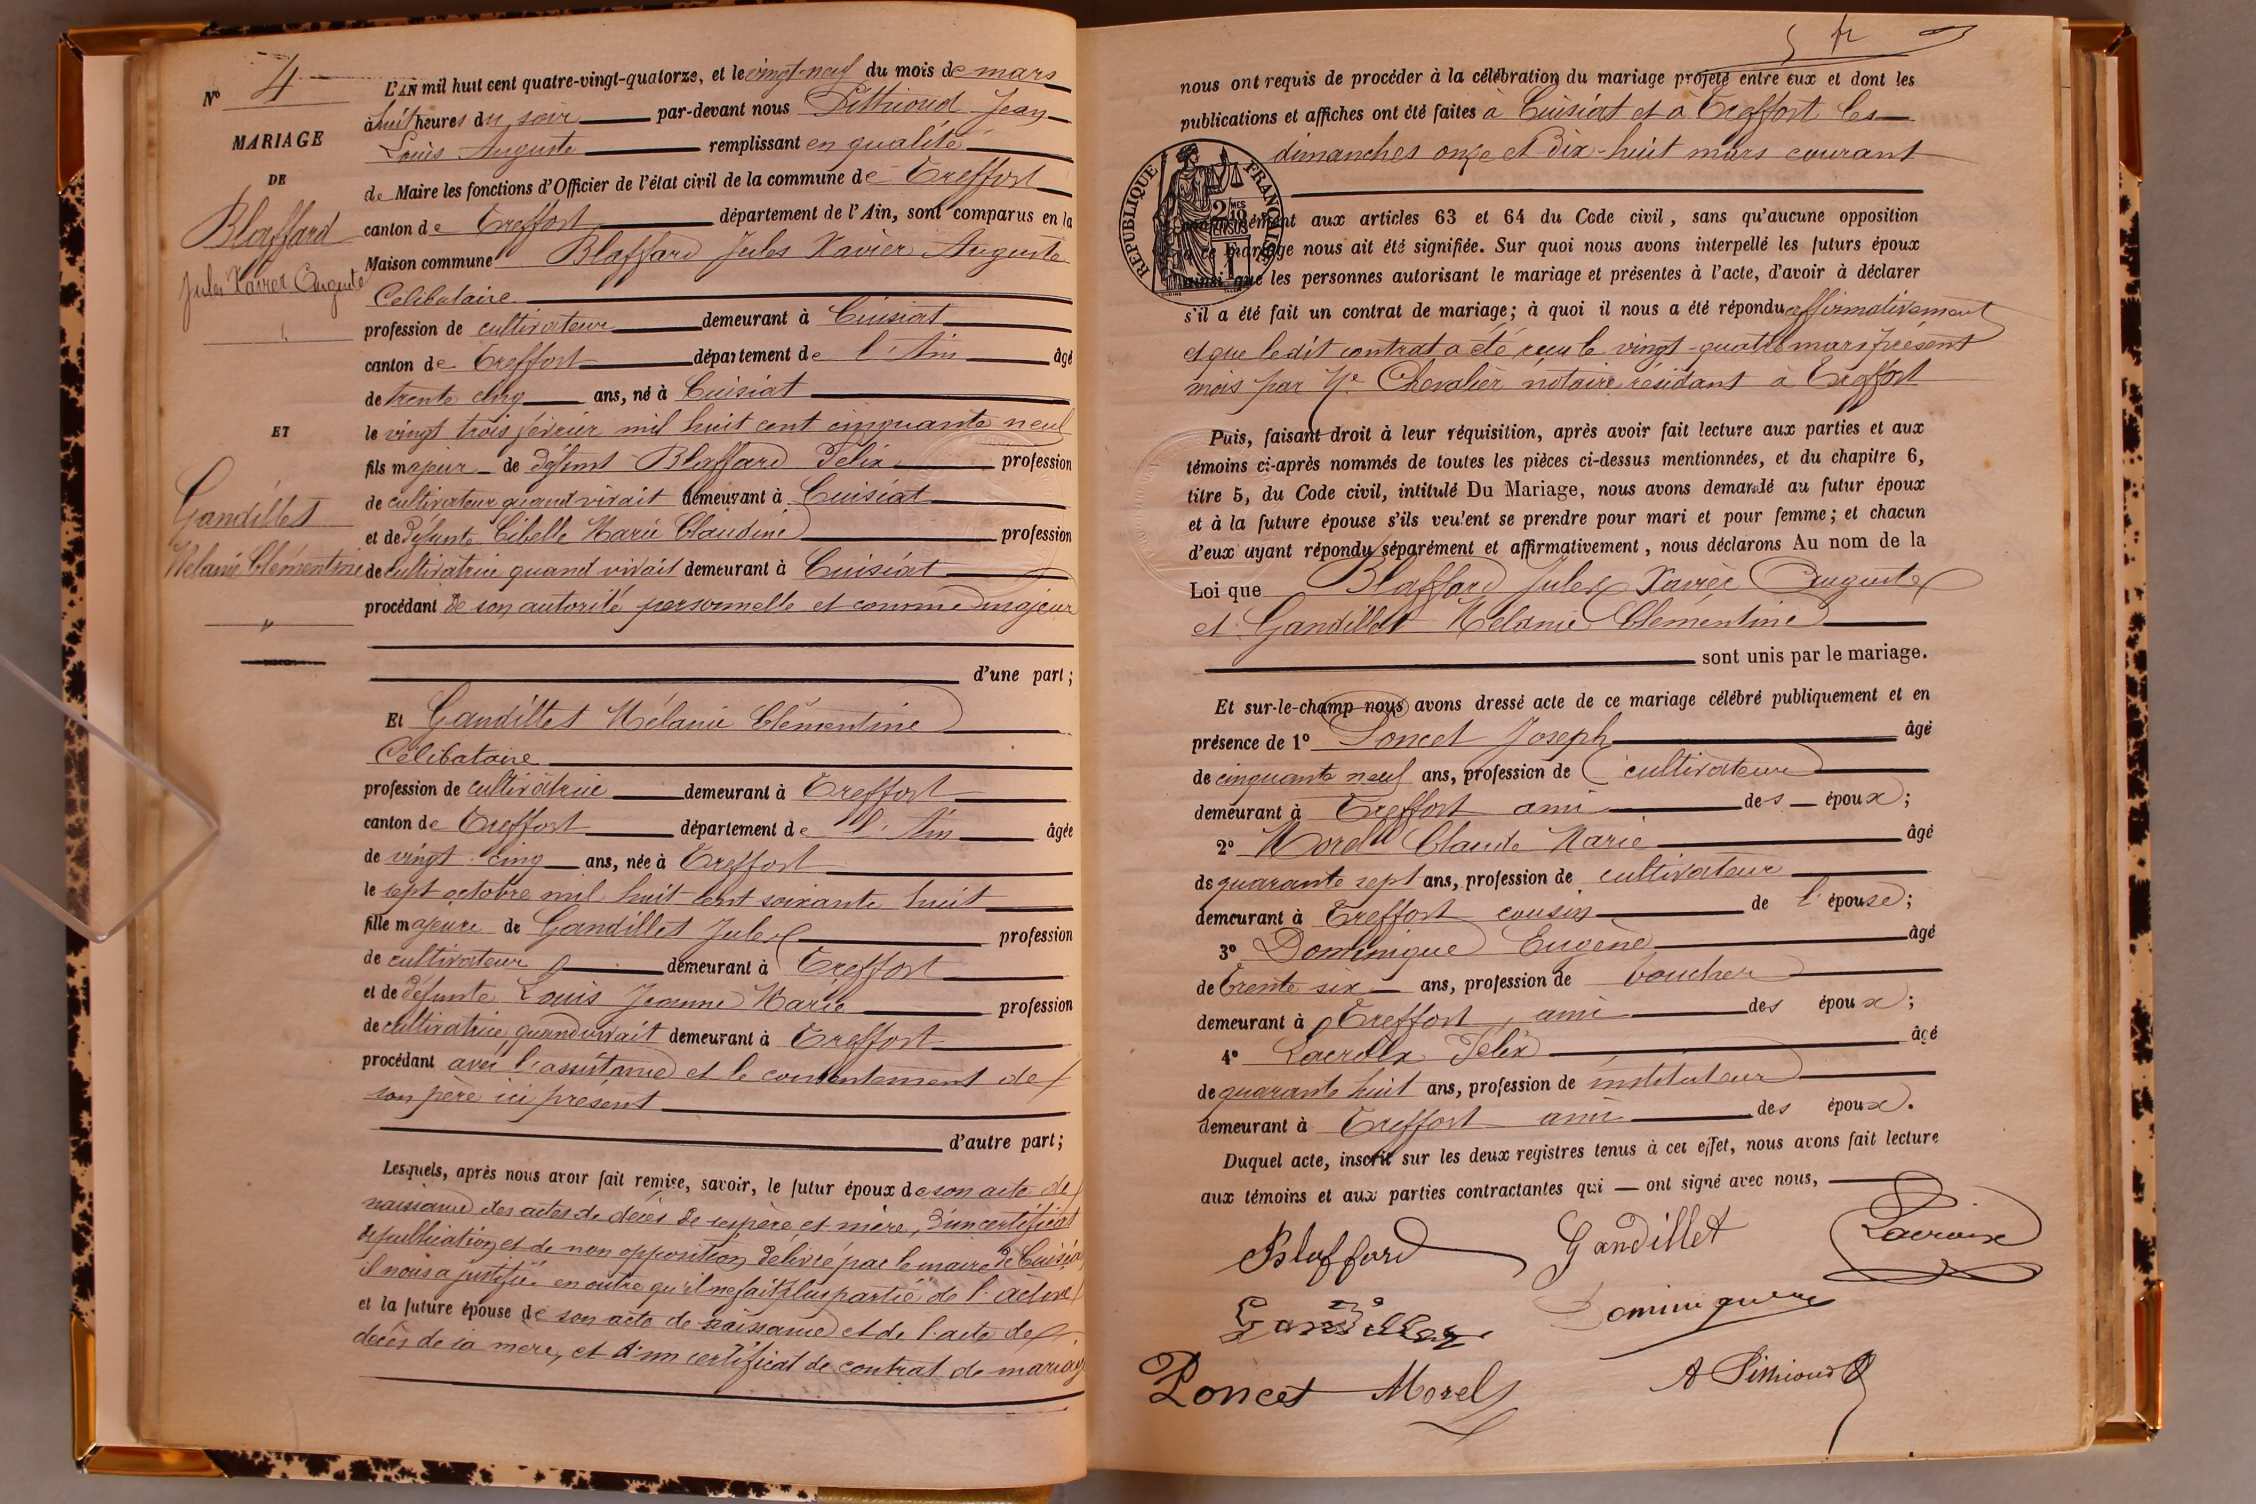 Nº 4
MARIAGE
DE
Blaffard
Jules Xavier Auguste
ET
Gandillet
Mélanie Clémentine
L'AN mil huit cent quatre-vingt-quatorze, et le vingt-neuf du mois de mars
à huit heures du soir par-devant nous Pithioud Jean
Louis Auguste remplissant en qualité
de Maire les fonctions d'Officier de l'état civil de la commune de Treffort
canton de Treffort département de l'Ain, sont comparus en la
Maison commune Blaffard Jules Xavier Auguste
Célibataire
profession de cultivateur demeurant à Cuisiat
canton de Treffort département de l'Ain âgé
de trente cinq ans, né à Cuisiat
le vingt trois février mil huit cent cinquante neuf
fils majeur de défunt Blaffard Félix profession
de cultivateur quand vivait demeurant à Cuisiat
et de défunte Cibelle Marie Claudine profession
de cultivatrice quand vivait demeurant à Cuisiat
procédant de son autorité personnelle et comme majeur
d'une part;
Et Gandillet Mélanie Clémentine
Célibataire
profession de cultivatrice demeurant à Treffort
canton de Treffort département de l'Ain âgée
de vingt cinq ans, née à Treffort
le sept octobre mil huit cent soixante huit
fille majeure de Gandillet Jules profession
de cultivateur demeurant à Treffort
et de défunte Louis Jeanne Marie profession
de cultivatrice quand vivait demeurant à Treffort
procédant avec l'assistance et le consentement de
son père ici présent
d'autre part;
Lesquels, après nous avoir fait remise, savoir, le futur époux de son acte de
naissance des actes de décès de ses père et mère, d'un certificat
de publication et de non opposition délivré par le maire de Cuisiat
il nous a justifié en outre qu'il ne fait plus partie de l'active
et la future épouse de son acte de naissance et de l'acte de
décès de sa mère, et d'un certificat de contrat de mariage
5 fr
nous ont requis de procéder à la célébration du mariage projeté entre eux et dont les
publications et affiches ont été faites à Cuisiat et à Treffort les
dimanches onze et dix-huit mars courant
RÉPUBLIQUE FRANÇAISE
2/10 EN SUS
conformément aux articles 63 et 64 du Code civil, sans qu'aucune opposition
à ce mariage nous ait été signifiée. Sur quoi nous avons interpellé les futurs époux
ainsi que les personnes autorisant le mariage et présentes à l'acte, d'avoir à déclarer
s'il a été fait un contrat de mariage; à quoi il nous a été répondu affirmativement
et que ledit contrat a été reçu le vingt-quatre mars présent
mois par Me Chevalier notaire résidant à Treffort
Puis, faisant droit à leur réquisition, après avoir fait lecture aux parties et aux
témoins ci-après nommés de toutes les pièces ci-dessus mentionnées, et du chapitre 6,
titre 5, du Code civil, intitulé Du Mariage, nous avons demandé au futur époux
et à la future épouse s'ils veulent se prendre pour mari et pour femme; et chacun
d'eux ayant répondu séparément et affirmativement, nous déclarons Au nom de la
Loi que Blaffard Jules Xavier Auguste
et Gandillet Mélanie Clémentine
sont unis par le mariage.
Et sur-le-champ nous avons dressé acte de ce mariage célébré publiquement et en
présence de 1º Poncet Joseph âgé
de cinquante neuf ans, profession de cultivateur
demeurant à Treffort ami des époux;
2º Morel Claude Marie âgé
de quarante sept ans, profession de cultivateur
demeurant à Treffort cousin de l'épouse;
3º Dominique Eugène âgé
de trente six ans, profession de boucher
demeurant à Treffort, ami des époux;
4º Lacroix Félix âgé
de quarante huit ans, profession de instituteur
demeurant à Treffort ami des époux.
Duquel acte, inscrit sur les deux registres tenus à cet effet, nous avons fait lecture
aux témoins et aux parties contractantes qui ont signé avec nous,
Blaffard Gandillet Lacroix
Gandillet Dominique
Poncet Morel A Pithioud